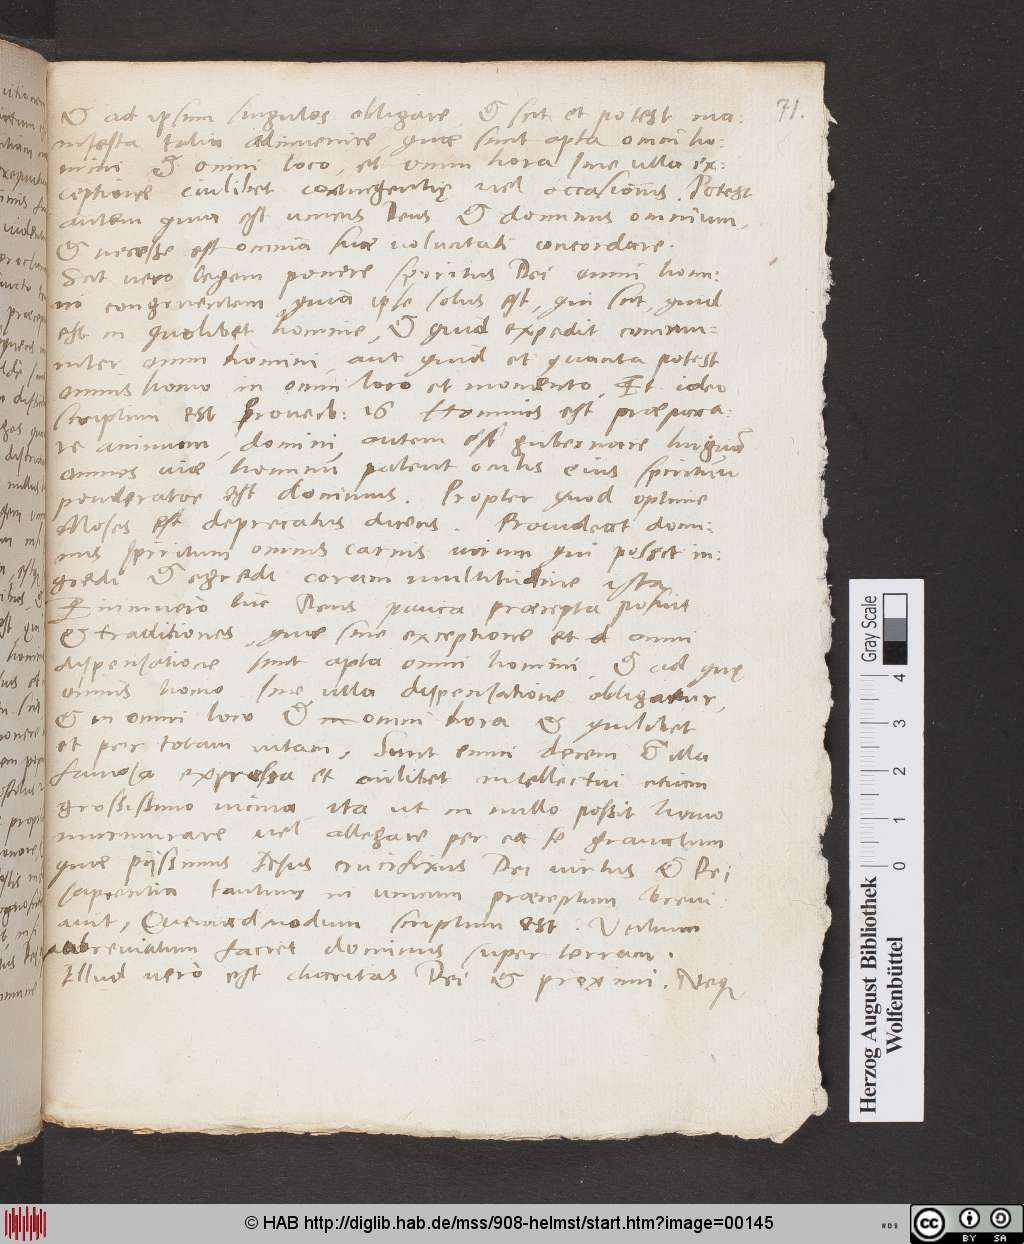 71.
& ad ipsum singulos obligare, & scit et potest ma:
nifesta talia adinvenire, quae sunt apta omni ho:
mini & omni loco, et omni hora sine ulla ex:
ceptione cuilibet contingentię vel occasionis. Potest
autem quia est unicus Deus & dominus omnium,
& necesse est omnia suae voluntati concordare.
Scit vero legem ponere spiritus Dei omni homi:
ni congruentem, quia ipse solus est, qui scit, quid
est in quolibet homine, & quid expedit commu:
niter omni homini, aut quid et quanta potest
omnis homo in omni loco et momento. Et ideo
scriptum est Proverb: 16 Hominis est praepara:
re animum, domini autem est gubernare linguā
omnes viae hominū patent oculis eius spirituū
ponderator est dominus. Propter quod optime
Moses est deprecatus dicens. Provideat domi:
nus spirituum omnis carnis virum qui posset in:
gredi & egredi coram multitudine ista
Enimvero hic Deus pauca praecepta posuit
& traditiones, quae sine exceptione et omni
dispensatione sunt apta omni homini, & ad quę
omnis homo sine ulla dispensatione obligatur,
& in omni loco & in omni hora & quilibet
et per totam vitam, Sunt enim decem & illa
famosa expressa et cuilibet intellectui etiam
grossissimo vicina ita ut in nullo possit homo
murmurare vel allegare per ea se gravatum
quae piissimus Jesus crucifixus Dei virtus & Dei
sapientia tantum in unum praeceptum brevi
avit, Quemadmodum scriptum est. Verbum
abbreviatum faciet dominus super terram.
Illud vero est charitas Dei & proximi. Neq
Gray Scale
0 1 2 3 4
Herzog August Bibliothek
Wolfenbüttel
© HAB http://diglib.hab.de/mss/908-helmst/start.htm?image=00145
WDB
cc BY SA